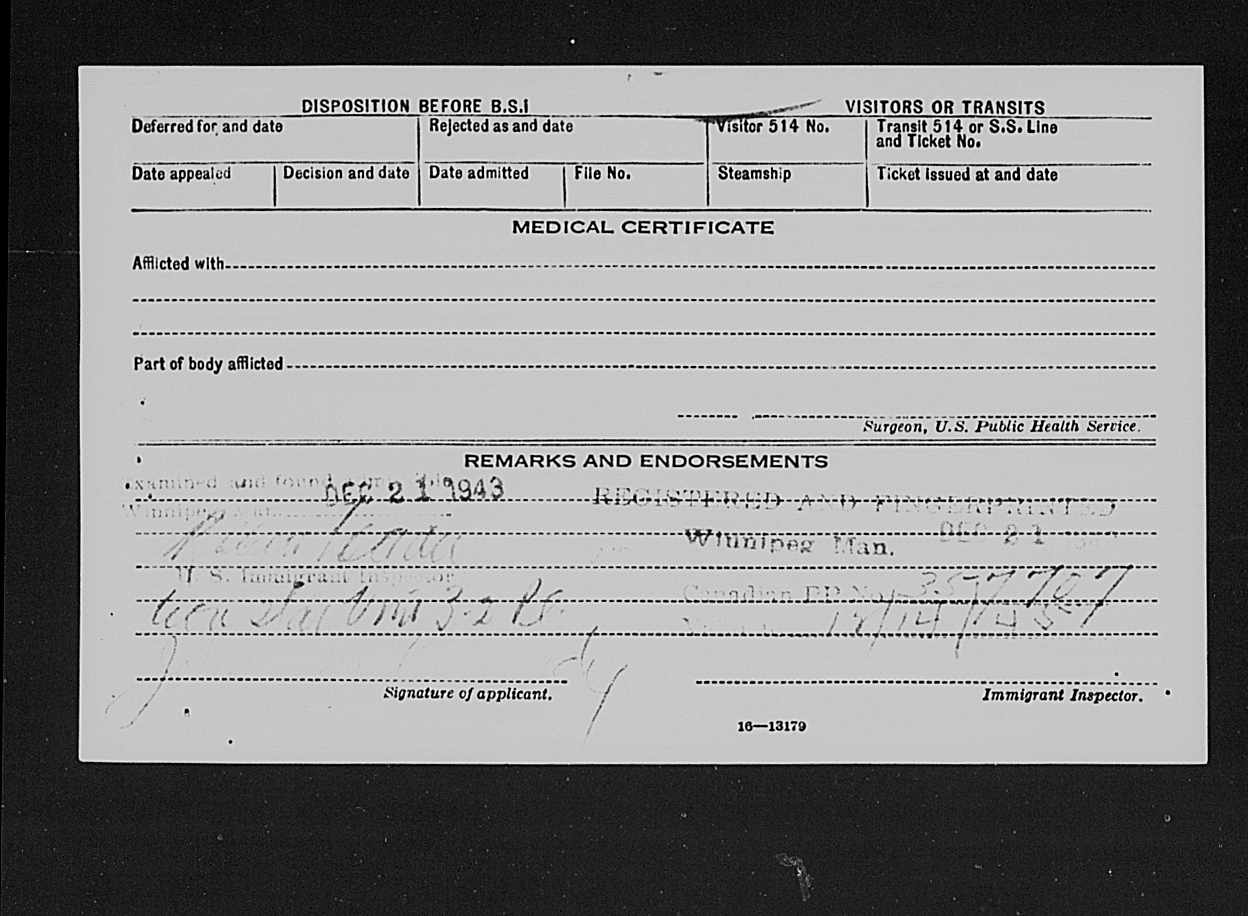 DISPOSITION BEFORE B.S.I
VISITORS OR TRANSITS
Deferred for and date
Rejected as and date
Visitor 514 No.
Transit 514 or S.S. Line
and Ticket No.
Date appealed
Decision and date
Date admitted
File No.
Steamship
Ticket issued at and date
MEDICAL CERTIFICATE
Afflicted with
Part of body afflicted
Surgeon, U.S. Public Health Service.
REMARKS AND ENDORSEMENTS
examined and found
DEC 21 1943
REGISTERED AND FINGERPRINTED
Winnipeg
Winnipeg Man. DEC 21
U. S. Immigrant Inspector
Canadian PP No.
Signature of applicant.
Immigrant Inspector.
16—13179